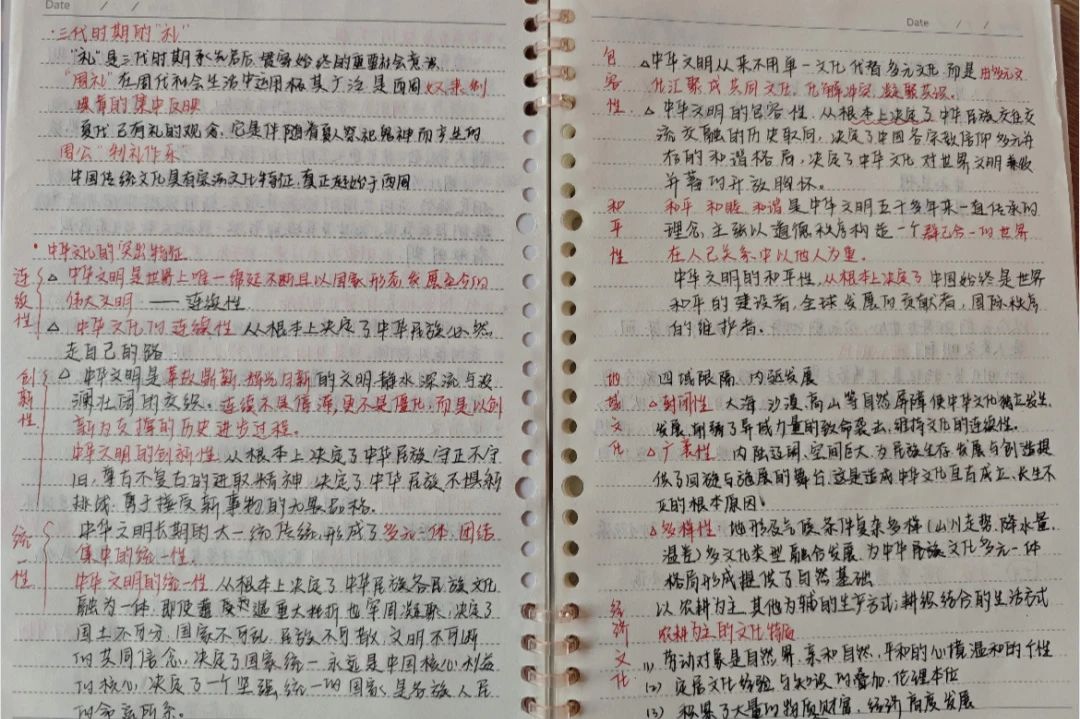 Date / /
·三代时期的"礼"
"礼"是三代时期承先启后、贯穿始终的重要社会意识
"周礼"在周代社会生活中运用极其广泛 是西周奴隶制
成熟的集中反映
夏代已有礼的观念,它是伴随着夏人祭祀鬼神而产生的
周公"制礼作乐
中国传统文化具有宗法文化特征,真正起始于西周
·中华文化的突出特征
连续性
△中华文明是世界上唯一绵延不断且以国家形态发展至今的
伟大文明 —— 连续性
△ 中华文化的连续性 从根本上决定了中华民族必然
走自己的路
创新性
△ 中华文明是革故鼎新、辉光日新的文明 静水深流与波
澜壮阔的交织。连续不是停滞,更不是僵化,而是以创
新为支撑的历史进步过程。
中华文明的创新性 从根本上决定了中华民族守正不守
旧,尊古不复古的进取精神,决定了中华民族不惧新
挑战,勇于接受新事物的无畏品格。
统一性
中华文明长期的大一统传统,形成了多元一体、团结
集中的统一性。
中华文明的统一性 从根本上决定了中华民族各民族文化
融为一体,即使遭遇重大挫折也牢固凝聚,决定了
国土不可分,国家不可乱,民族不可散,文明不可断
的共同信念,决定了国家统一永远是中国核心利益
的核心,决定了一个坚强统一的国家是各族人民
的命运所系。
Date / /
包容性
△中华文明从来不用单一文化代替多元文化 而是由多元文
化汇聚成共同文化,化解冲突,凝聚共识。
△ 中华文明的包容性,从根本上决定了中华民族交往交
流交融的历史取向,决定了中国各宗教信仰多元并
存的和谐格局,决定了中华文化对世界文明兼收
并蓄的开放胸怀。
和平性
和平 和睦 和谐是中华文明五千多年来一直传承的
理念,主张以道德秩序构造一个群己合一的世界
在人己关系中以他人为重。
中华文明的和平性,从根本上决定了中国始终是世界
和平的建设者,全球发展的贡献者,国际秩序
的维护者。
地域文化
四域限隔 内驱发展
△封闭性 大海、沙漠、高山等自然屏障使中华文化独立发生
发展,削弱了异域力量的致命袭击,维持文化的连续性。
△广袤性 内陆辽阔,空间巨大,为民族生存、发展与创造提
供了回旋与施展的舞台,这是造成中华文化亘古屹立、长生不
亚的根本原因。
△多样性 地形及气候条件复杂多样(山川走势、降水量、
温差)多文化类型融合发展 为中华民族文化多元一体
格局形成提供了自然基础
经济文化
以农耕为主,其他为辅的生产方式;耕织结合的生活方式
农耕为主的文化特质
(1) 劳动对象是自然界,亲和自然,平和的心境 温和的个性
(2) 定居文化经验与知识的叠加,伦理本位
(3) 积累了大量的物质财富,经济高度发展